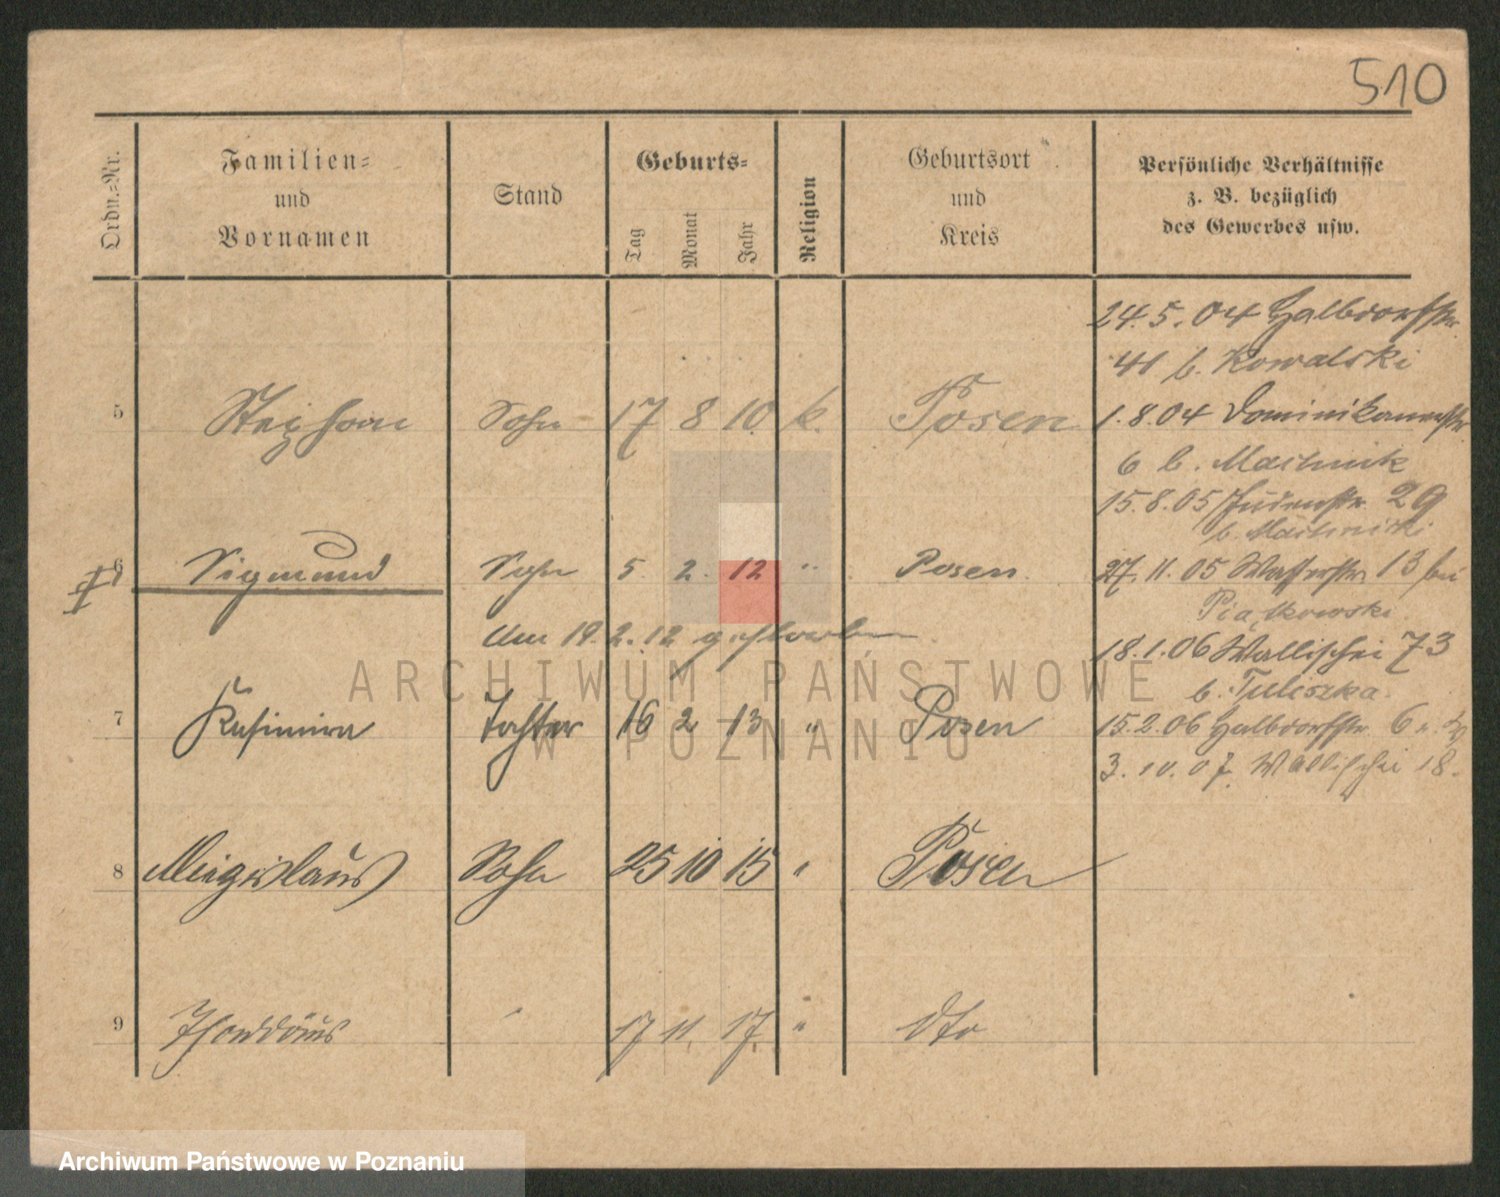 510
Ordn.-Nr.
Familien-
und
Vornamen
Stand
Geburts-
Tag
Monat
Jahr
Religion
Geburtsort
und
Kreis
Persönliche Verhältnisse
z. B. bezüglich
des Gewerbes usw.
24.5.04 Halbdorfstr
41 b. Kowalski
5 Stephan Sohn 17 8 10. k. Posen
1.8.04 Dominikanerstr
6 b.
15.8.05 Judenstr. 29
b.
6 Sigmund Sohn 5. 2. 12 " Posen.
27.11.05 Wasserstr. 13 bei
Piątkowski.
Am 19.2.12 gestorben.
18.1.06 Wallischei 73
b. Tuliszka.
7 Kasimira Tochter 16 2 13 " Posen
15.2.06 Halbdorfstr. 6
3.10.07. Wallischei 18.
8 Miezislaus Sohn 25 10 15 " Posen
9 Thaddäus " 17 11. 17. " dto
ARCHIWUM PAŃSTWOWE
W POZNANIU
Archiwum Państwowe w Poznaniu